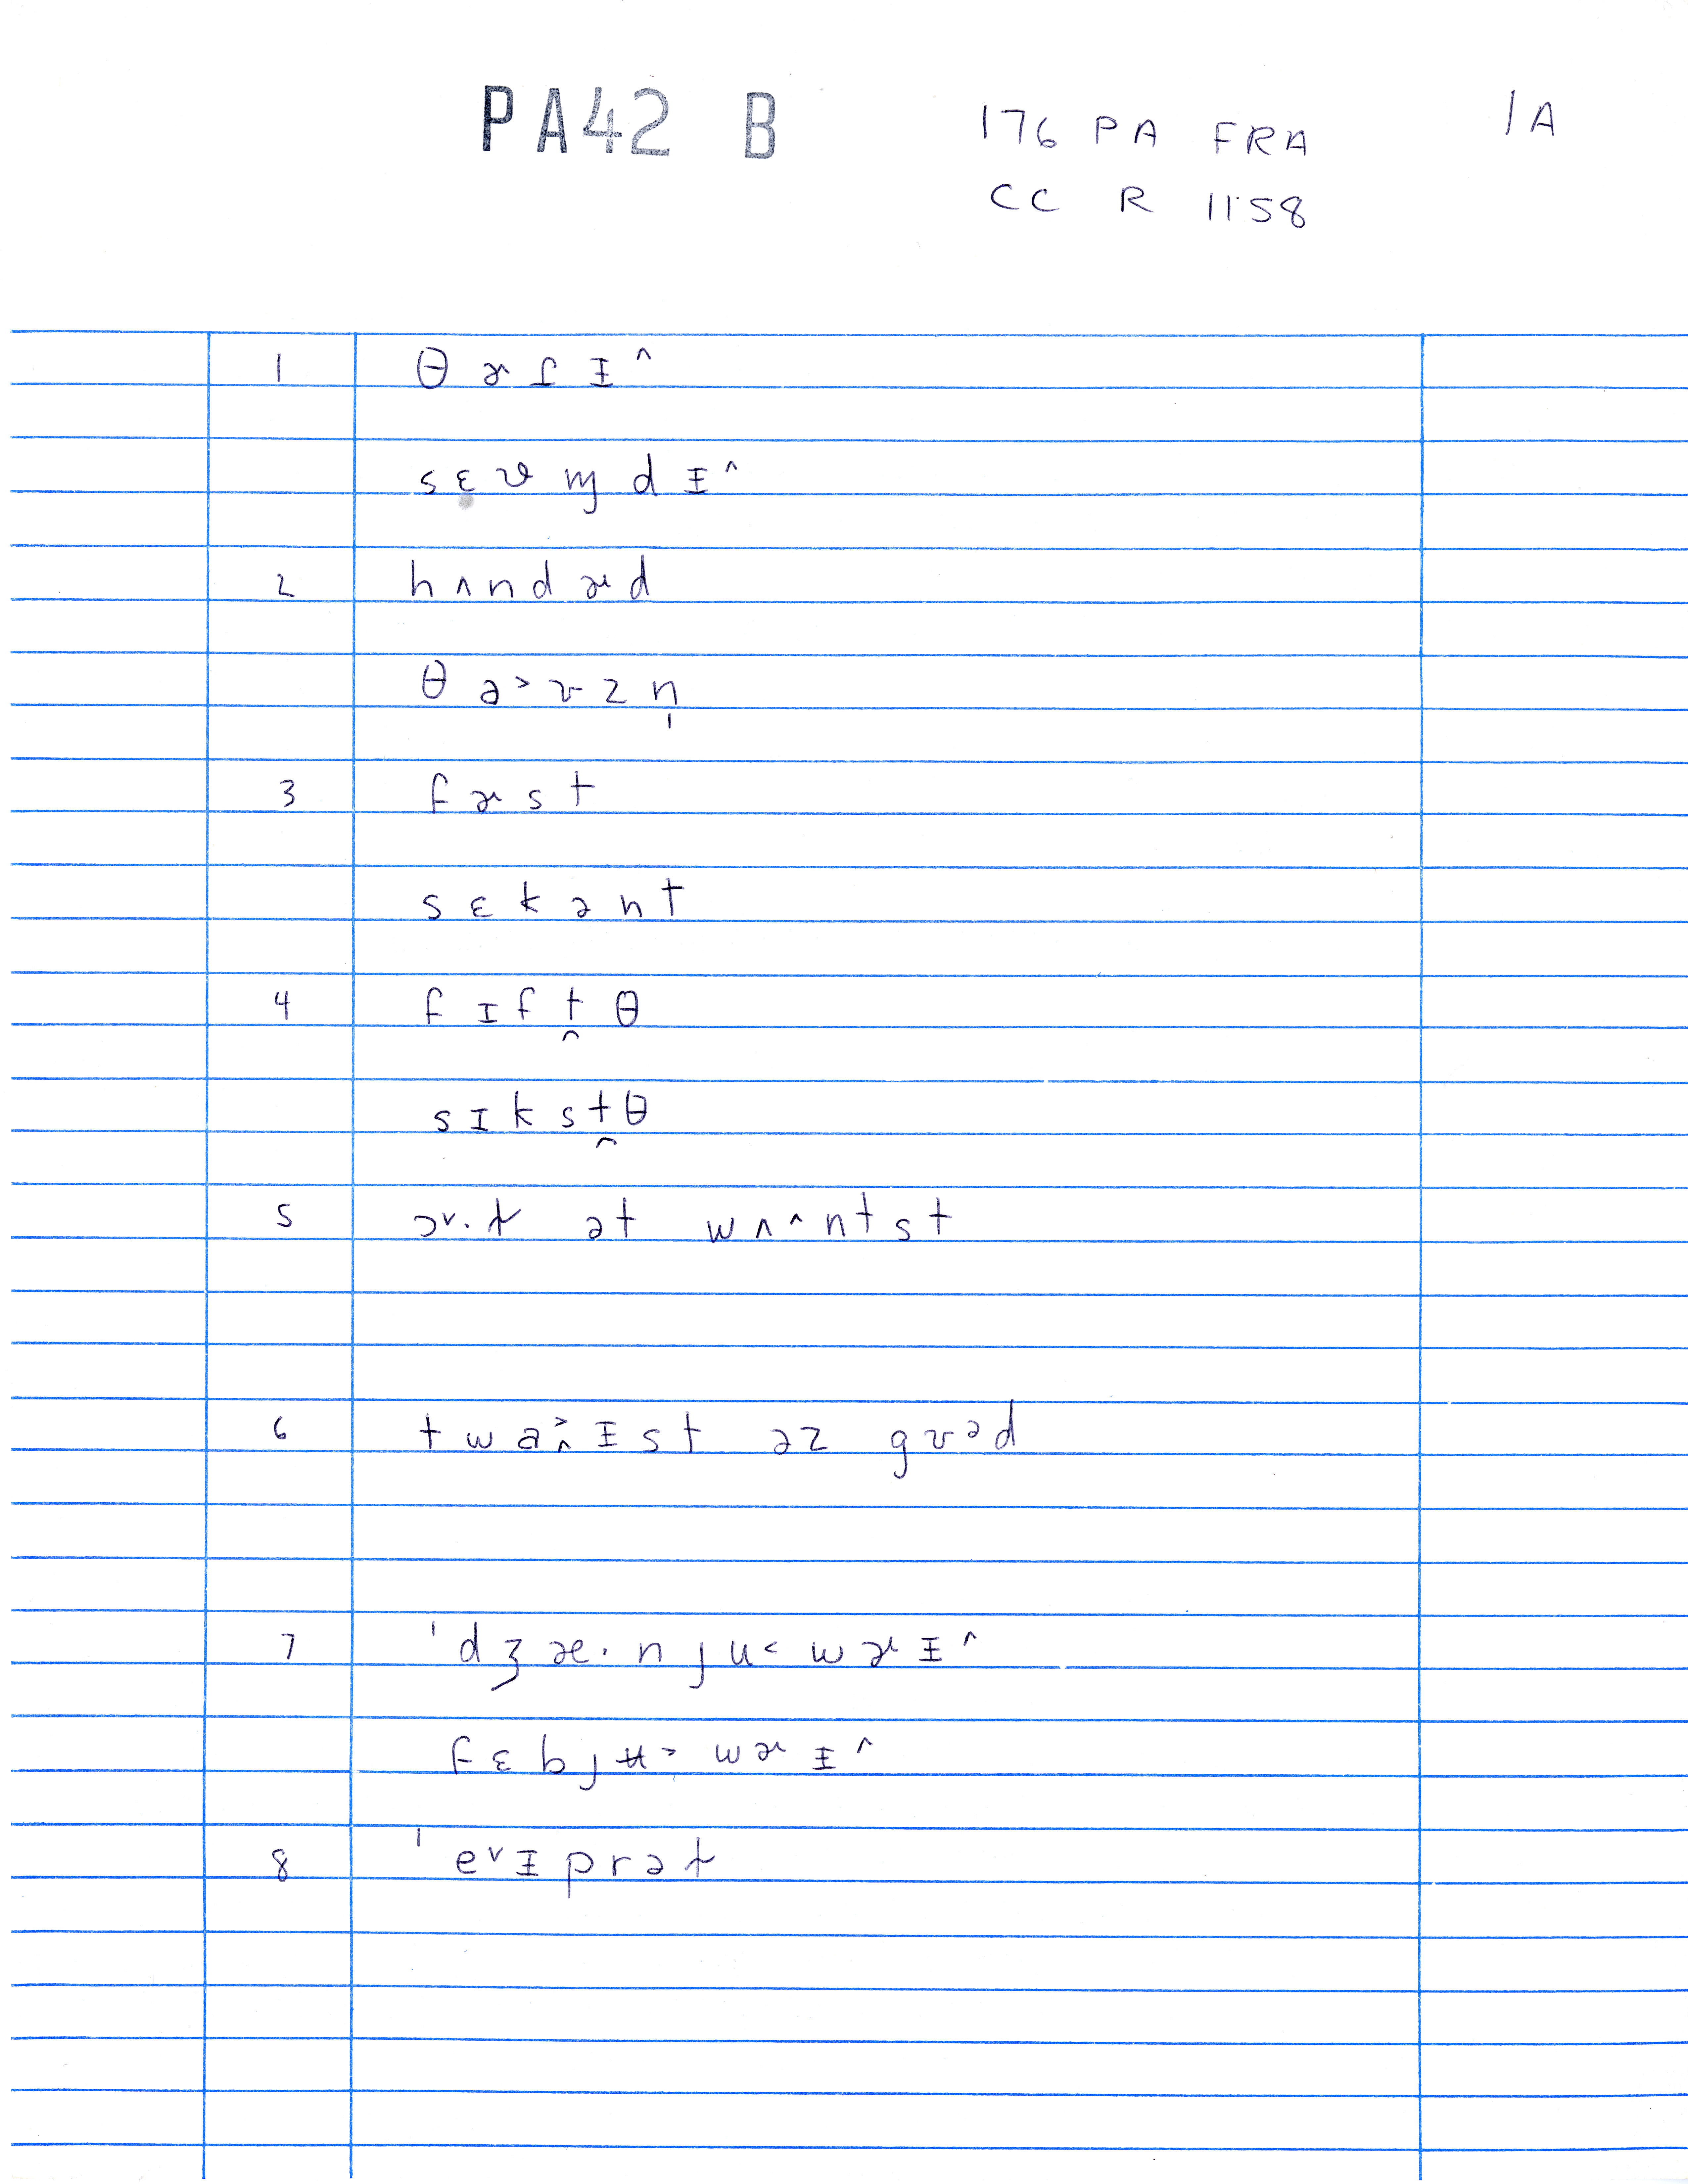 PA42 B
176 PA FRA
1A
CC R 1158
1 θ ɚ ʃ ɪ ^
s ɛ v ɱ d ɪ ^
2 h ʌ n d ɚ d
θ a > ʊ z n̩
3 f ɚ s t
s ɛ k ə n t
4 f ɪ f ṱ θ
s ɪ k s ṱ θ
ə t w ʌ ^ n t s t
6 t w a ɪ s t ə z g ʊ ə d
7 ˈd ʒ æ . n j u < w ɚ ɪ ^
f ɛ b j ʉ > w ɚ ɪ ^
8 ˈe v ɪ p r ə ɫ